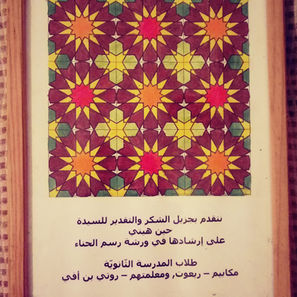 نتقدم بجزيل الشكر والتقدير للسيدة
جين هيني
على إرشادها في ورشة رسم الحناء
طلاب المدرسة الثانويّة
مكابيم – ريعوت, ومعلمتهم – روتي بن أفي